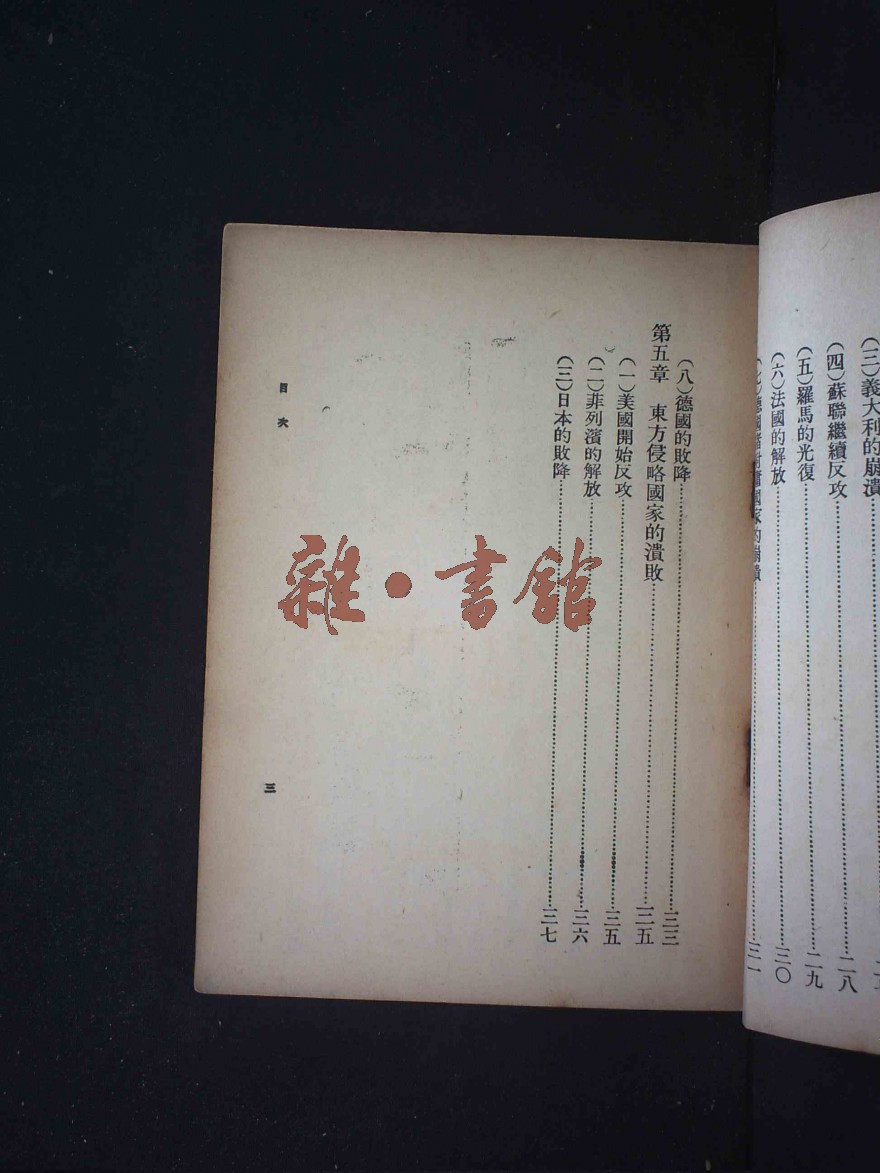 (三)義大利的崩潰
(四)蘇聯繼續反攻……二八
(五)羅馬的光復……二九
(六)法國的解放……三〇
國家的崩潰……三一
(八)德國的敗降……三三
第五章 東方侵略國家的潰敗……三五
(一)美國開始反攻……三五
(二)菲列濱的解放……三六
(三)日本的敗降……三七
目次
三
雜·書館